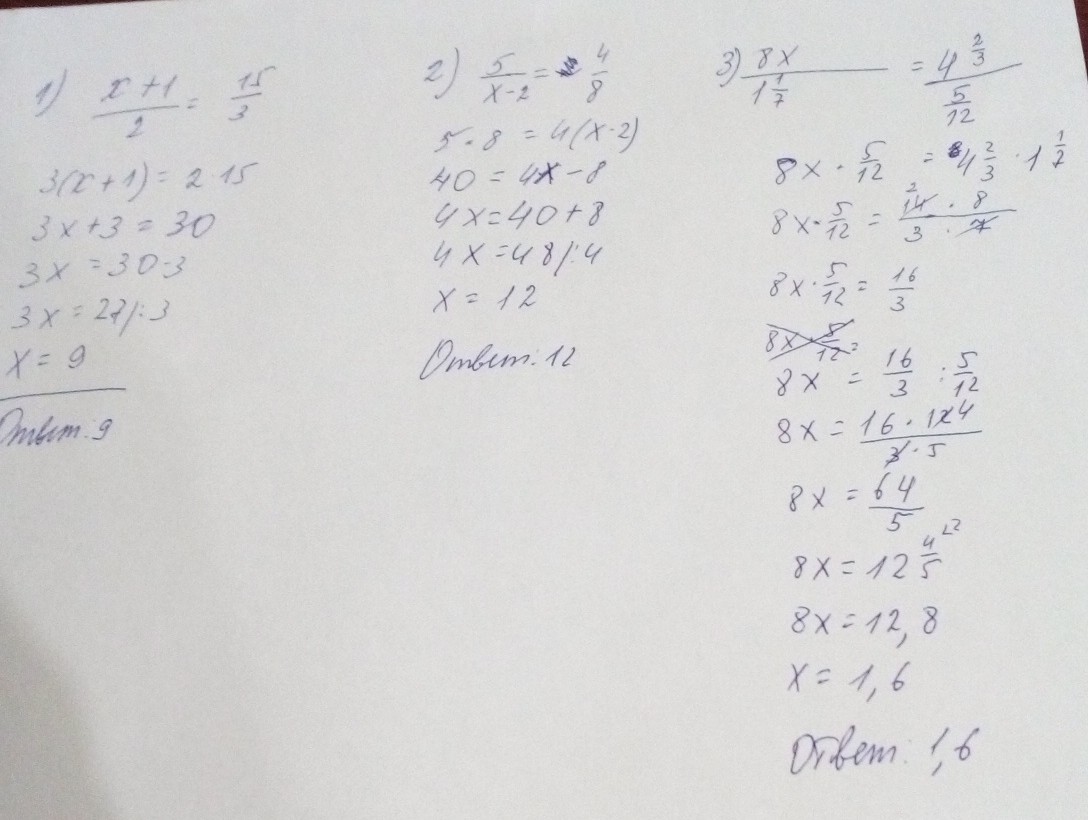 1) (x+1)/2 = 15/3
3(x+1) = 2·15
3x+3 = 30
3x = 30-3
3x = 27/:3
x = 9
Ответ: 9
2) 5/(x-2) = 4/8
5·8 = 4(x-2)
40 = 4x-8
4x = 40+8
4x = 48/:4
x = 12
Ответ: 12
3) 8x/(1 1/7) = 4 2/3/(5/12)
8x · 5/12 = 4 2/3 · 1 1/7
8x · 5/12 = (14 2 · 8)/(3 · 7)
8x · 5/12 = 16/3
8x · 8/12 =
8x = 16/3 : 5/12
8x = (16 · 12 4)/(3 · 5)
8x = 64/5
8x = 12 4/5
8x = 12,8
x = 1,6
Ответ: 1,6